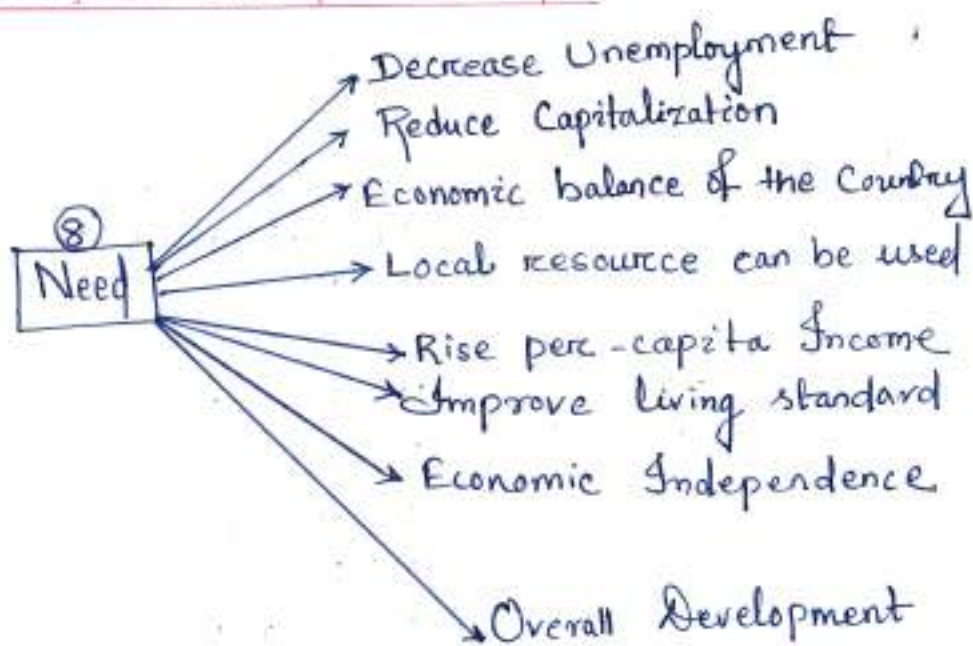 Decrease Unemployment
Reduce Capitalization
Economic balance of the Country
8
Need
Local resource can be used
Rise per-capita Income
Improve living standard
Economic Independence
Overall Development